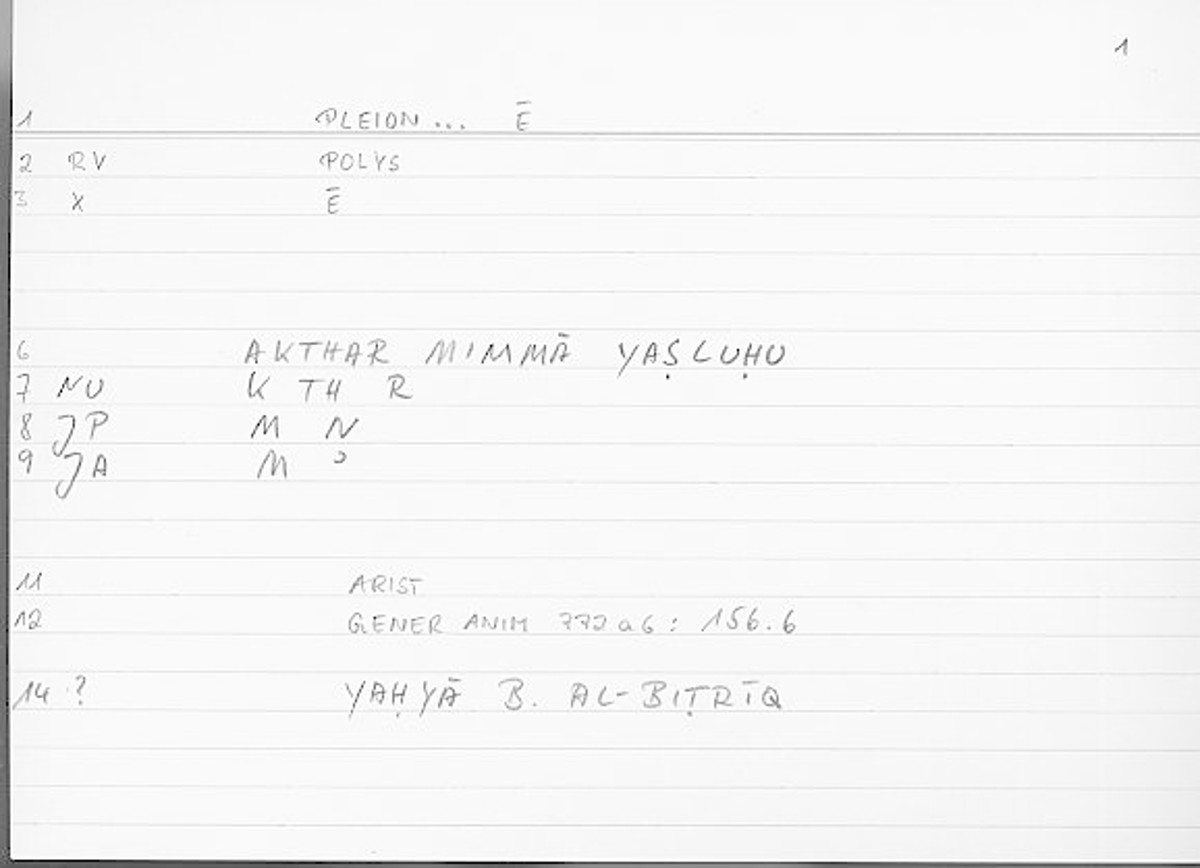 1
1 PLEION ... Ē
2 RV POLYS
3 X Ē
6 AKTHAR MIMMĀ YAṢLUḤU
7 NU K TH R
8 JP M N
9 JA M ʾ
11 ARIST
12 GENER ANIM 772 a 6 : 156.6
14 ? YAḤYĀ B. AL-BIṬRĪQ